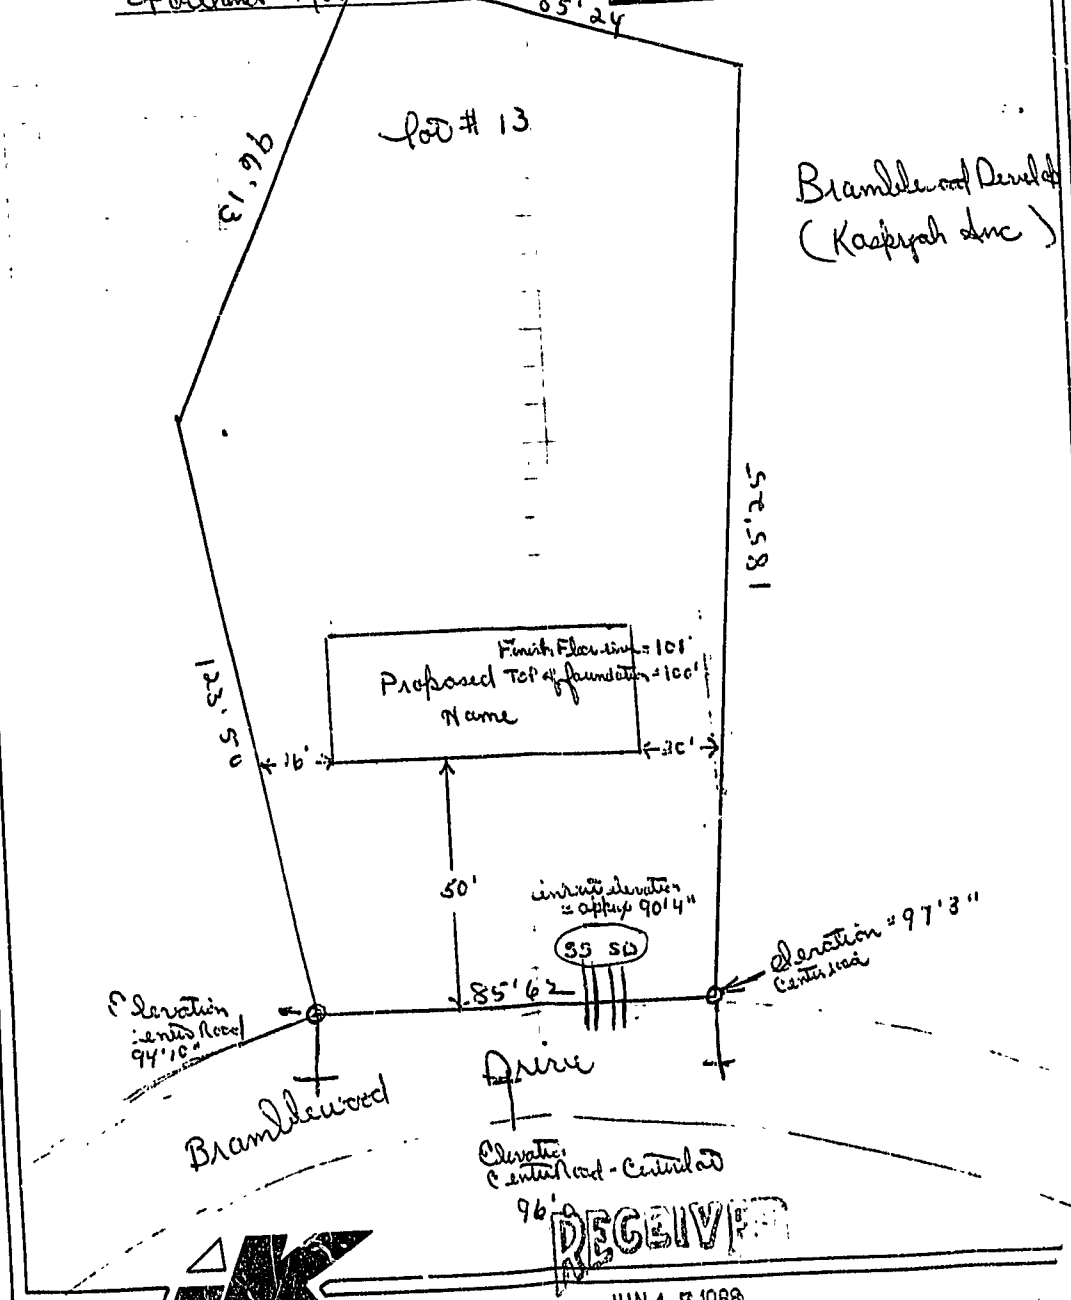 85'24
Lot # 13
96'13
Bramblewood Develop
(Kaspryah Inc)
185'25
Finish Floor line = 101'
Top of foundation = 100'
Proposed
Name
123'50
16'
30'
50'
invert elevation
= approx 90'4"
SS SD
85'62
Elevation = 97'3"
Center road
Elevation
Center Road
94'10"
Bramblewood Drive
Elevation
Center Road - Center lot
96'
RECEIVE
JUN 1 1988